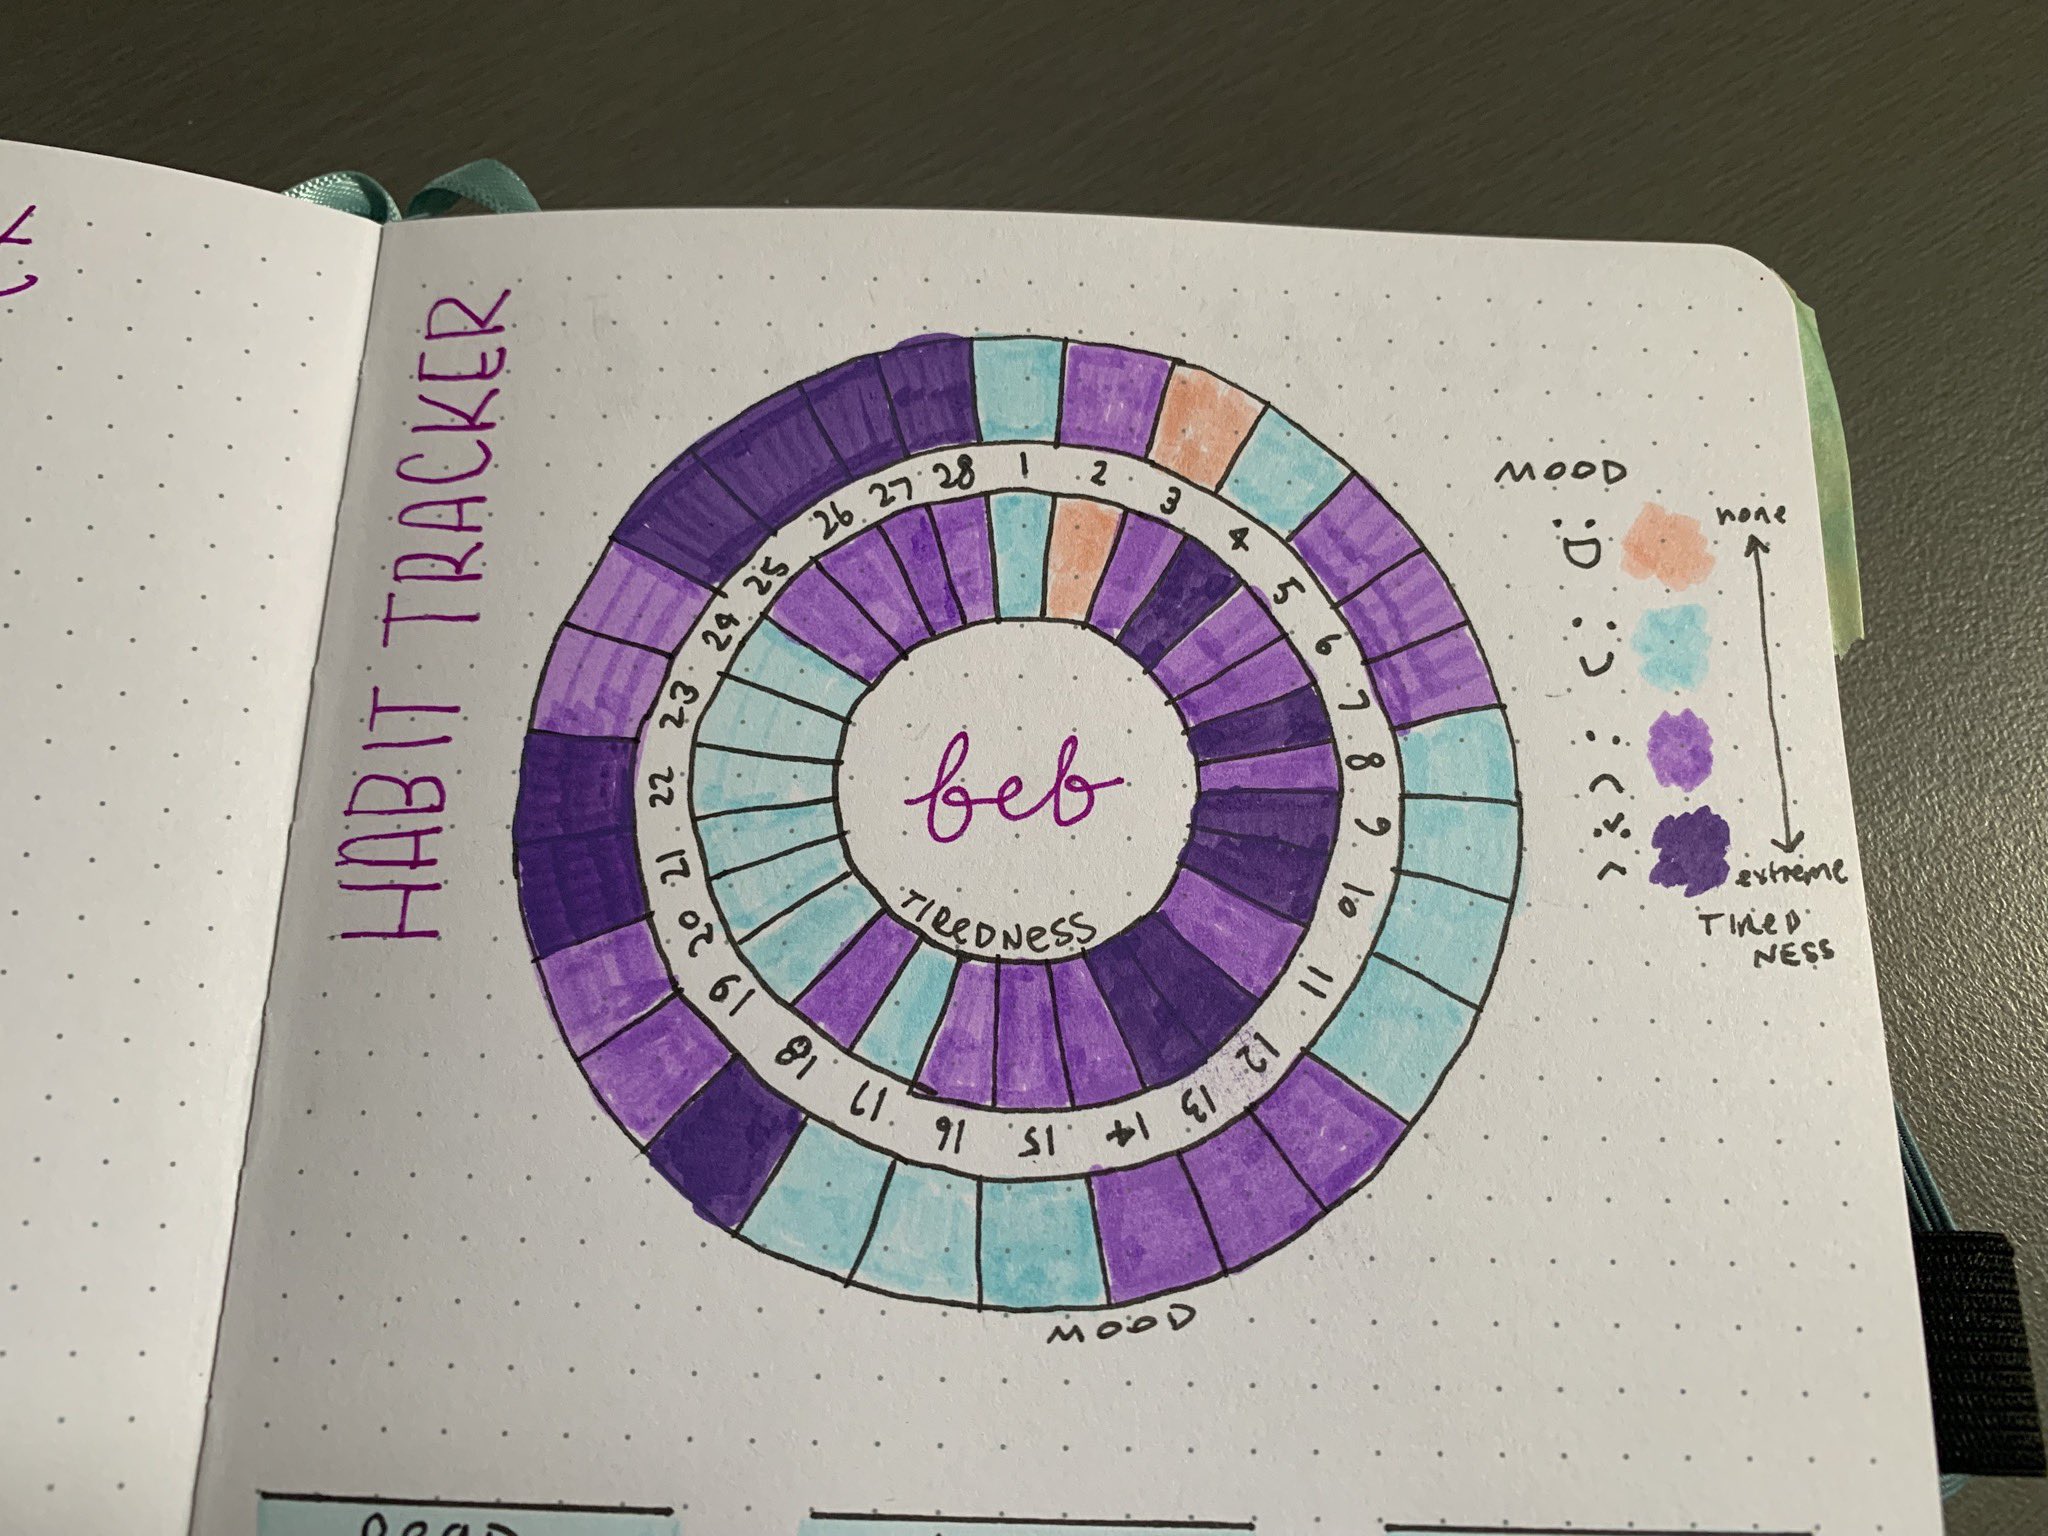 HABIT TRACKER
1
2
3
4
5
6
7
8
9
10
11
12
13
14
15
16
17
18
19
20
21
22
23
24
25
26
27
28
feb
TIREDNESS
MOOD
MOOD
:D
none
:)
:(
extreme
TIRED
NESS
READ